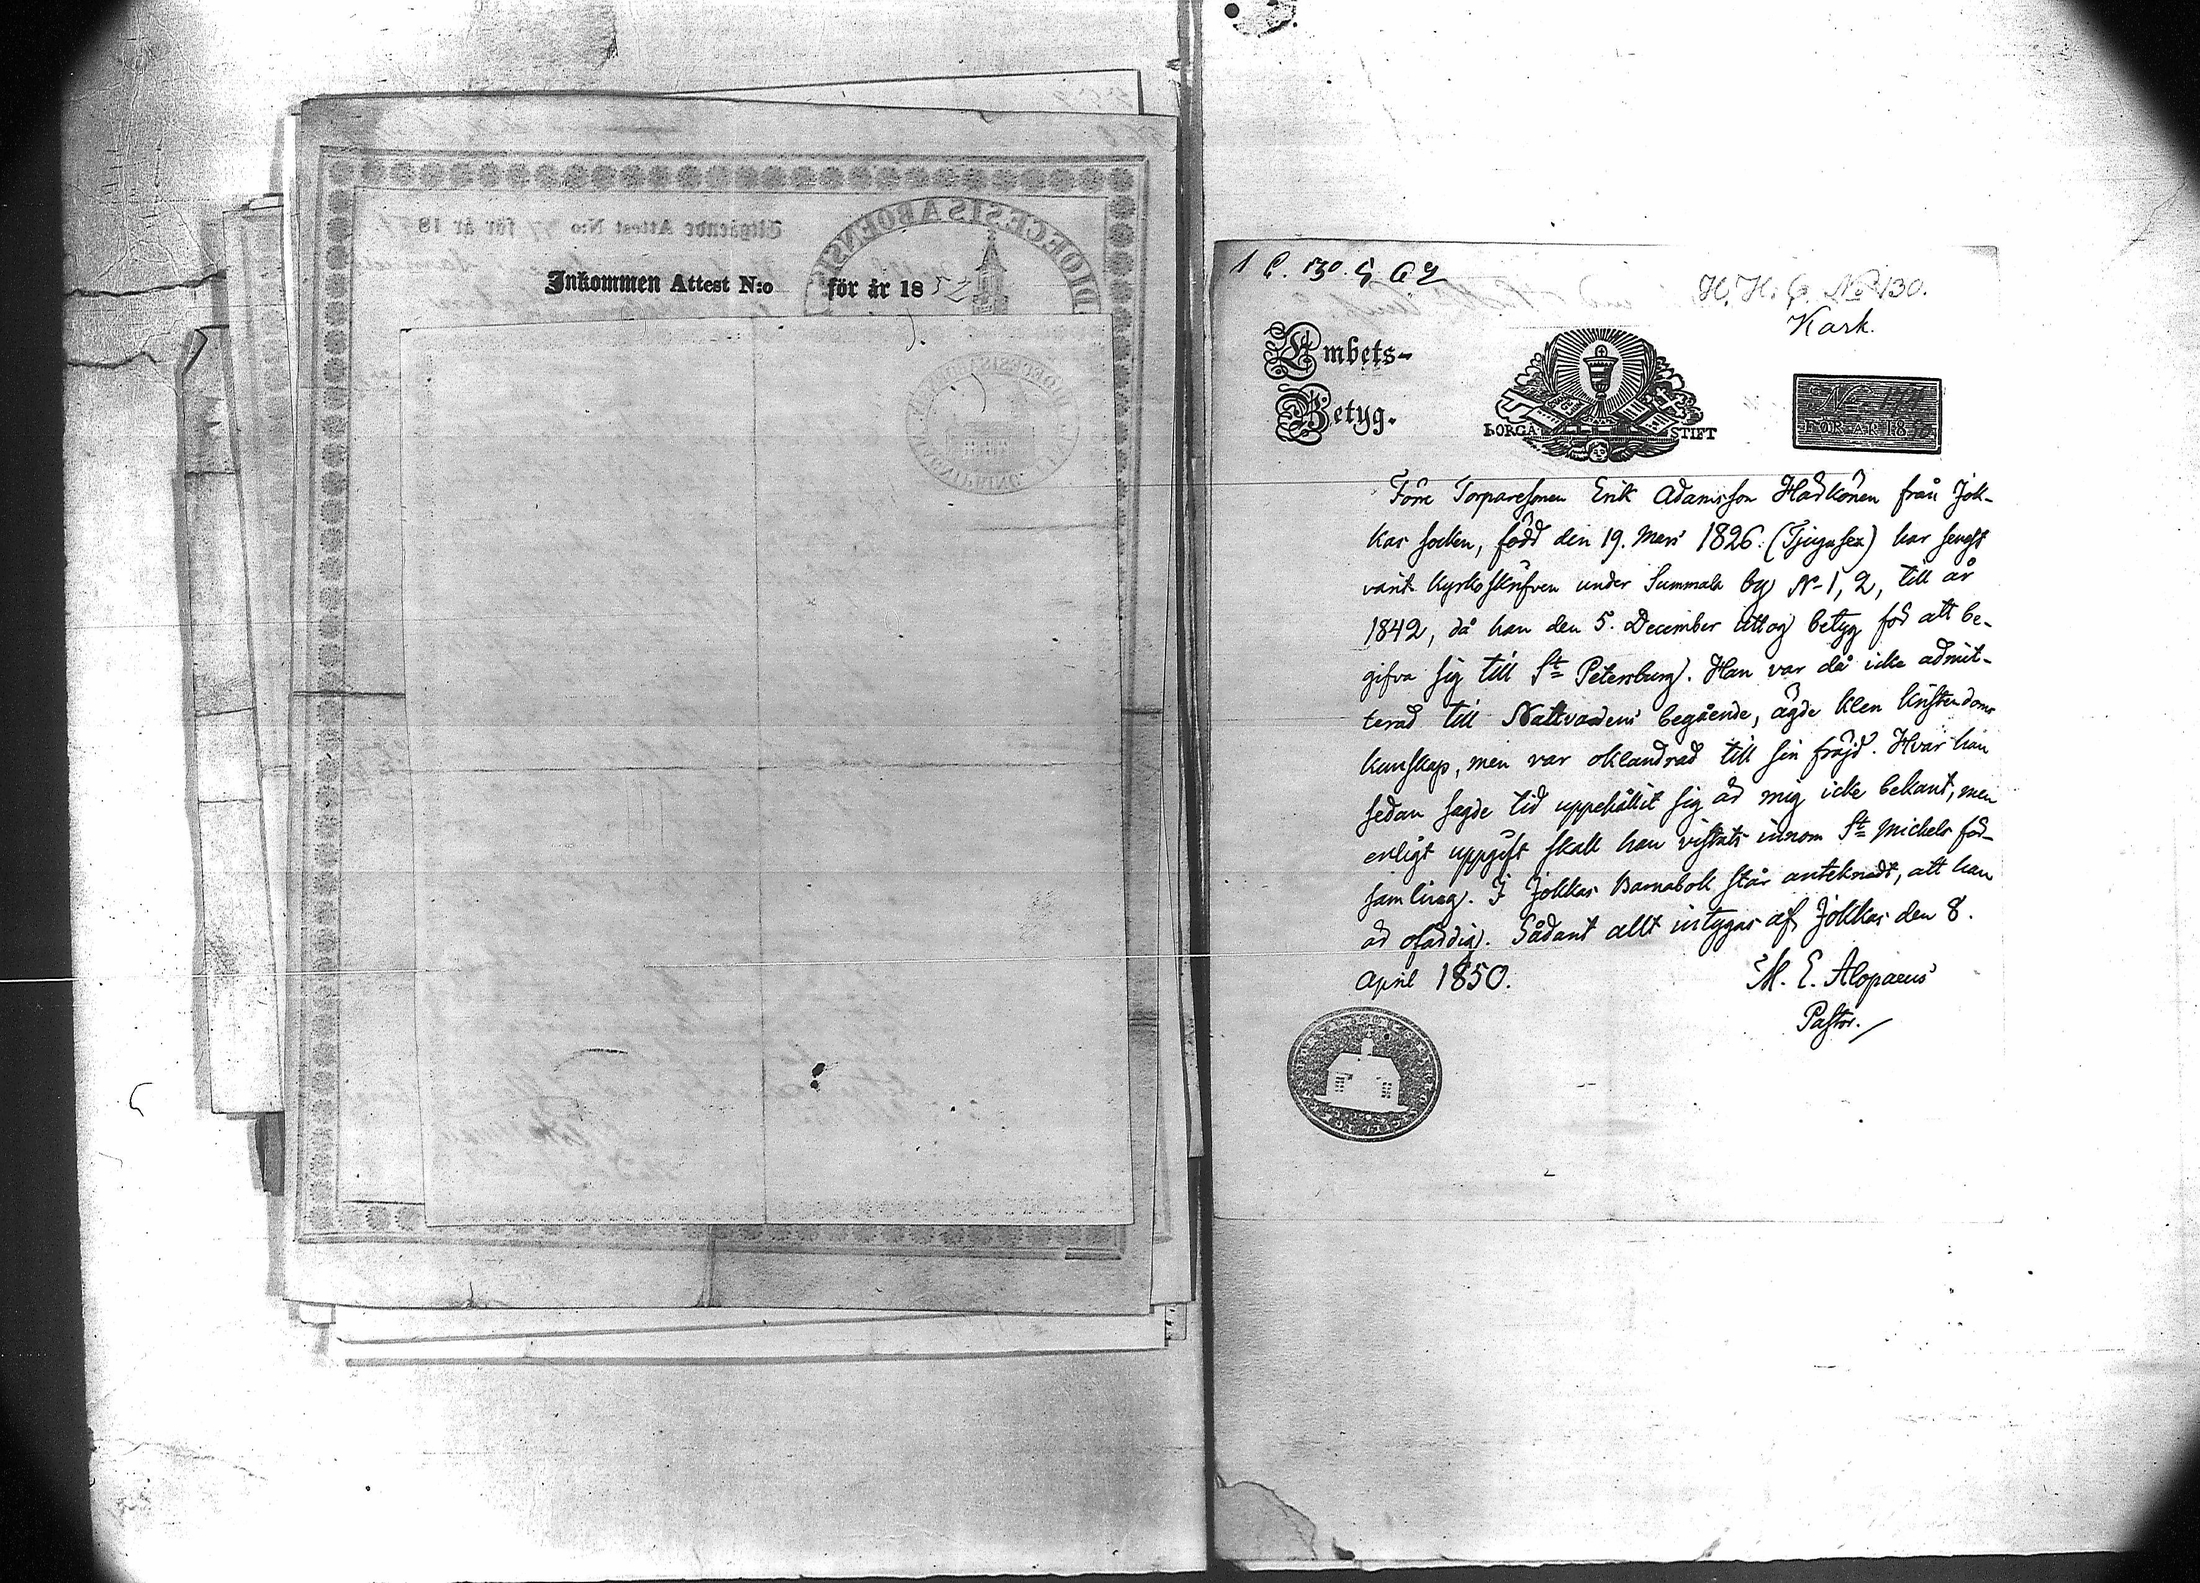 Inkommen Attest N:o för år 1852
1 C. 130. G. 62
H. H. C. No 130.
Kark.
Embets-
Betyg.
BORGÅ STIFT
No
FÖR ÅR 1850
Förre Torparesonen Erik Adamsson Hädkönen från Jok-
kas socken, född den 19. Mars 1826. (Tjugusex) har senast
varit kyrkoskrifven under Summala by No 1, 2, till år
1842, då han den 5. December uttog betyg för att be-
gifva sig till St Petersburg. Han var då icke admit-
terad till Nattvardens begående, ägde klen kristendoms
kunskap, men var oklandrad till sin fräjd. Hvar han
sedan sagde tid uppehållit sig är mig icke bekant, men
enligt uppgift skall han vistats innom St Michels för-
samling. I Jokkas Barnabok står antecknadt, att han
är ofärdig. Sådant allt intygas af Jokkas den 8.
April 1850.
M. E. Alopaeus
Pastor.